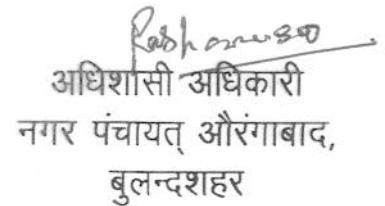 अधिशासी अधिकारी
नगर पंचायत् औरंगाबाद,
बुलन्दशहर